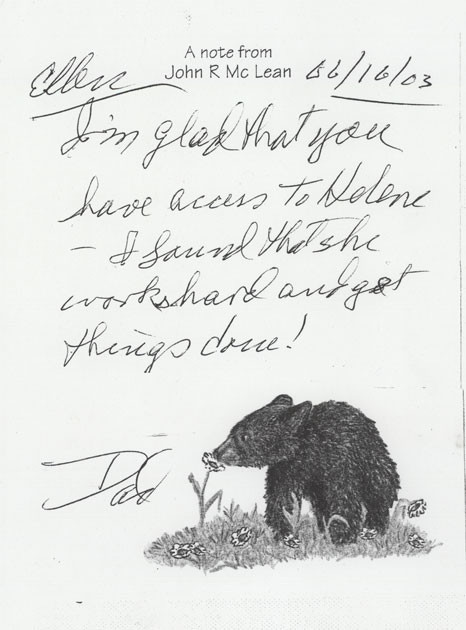 A note from
John R Mc Lean
Ellen
06/16/03
I'm glad that you
have access to Helene
- I found that she
works hard and gets
things done!
Dad